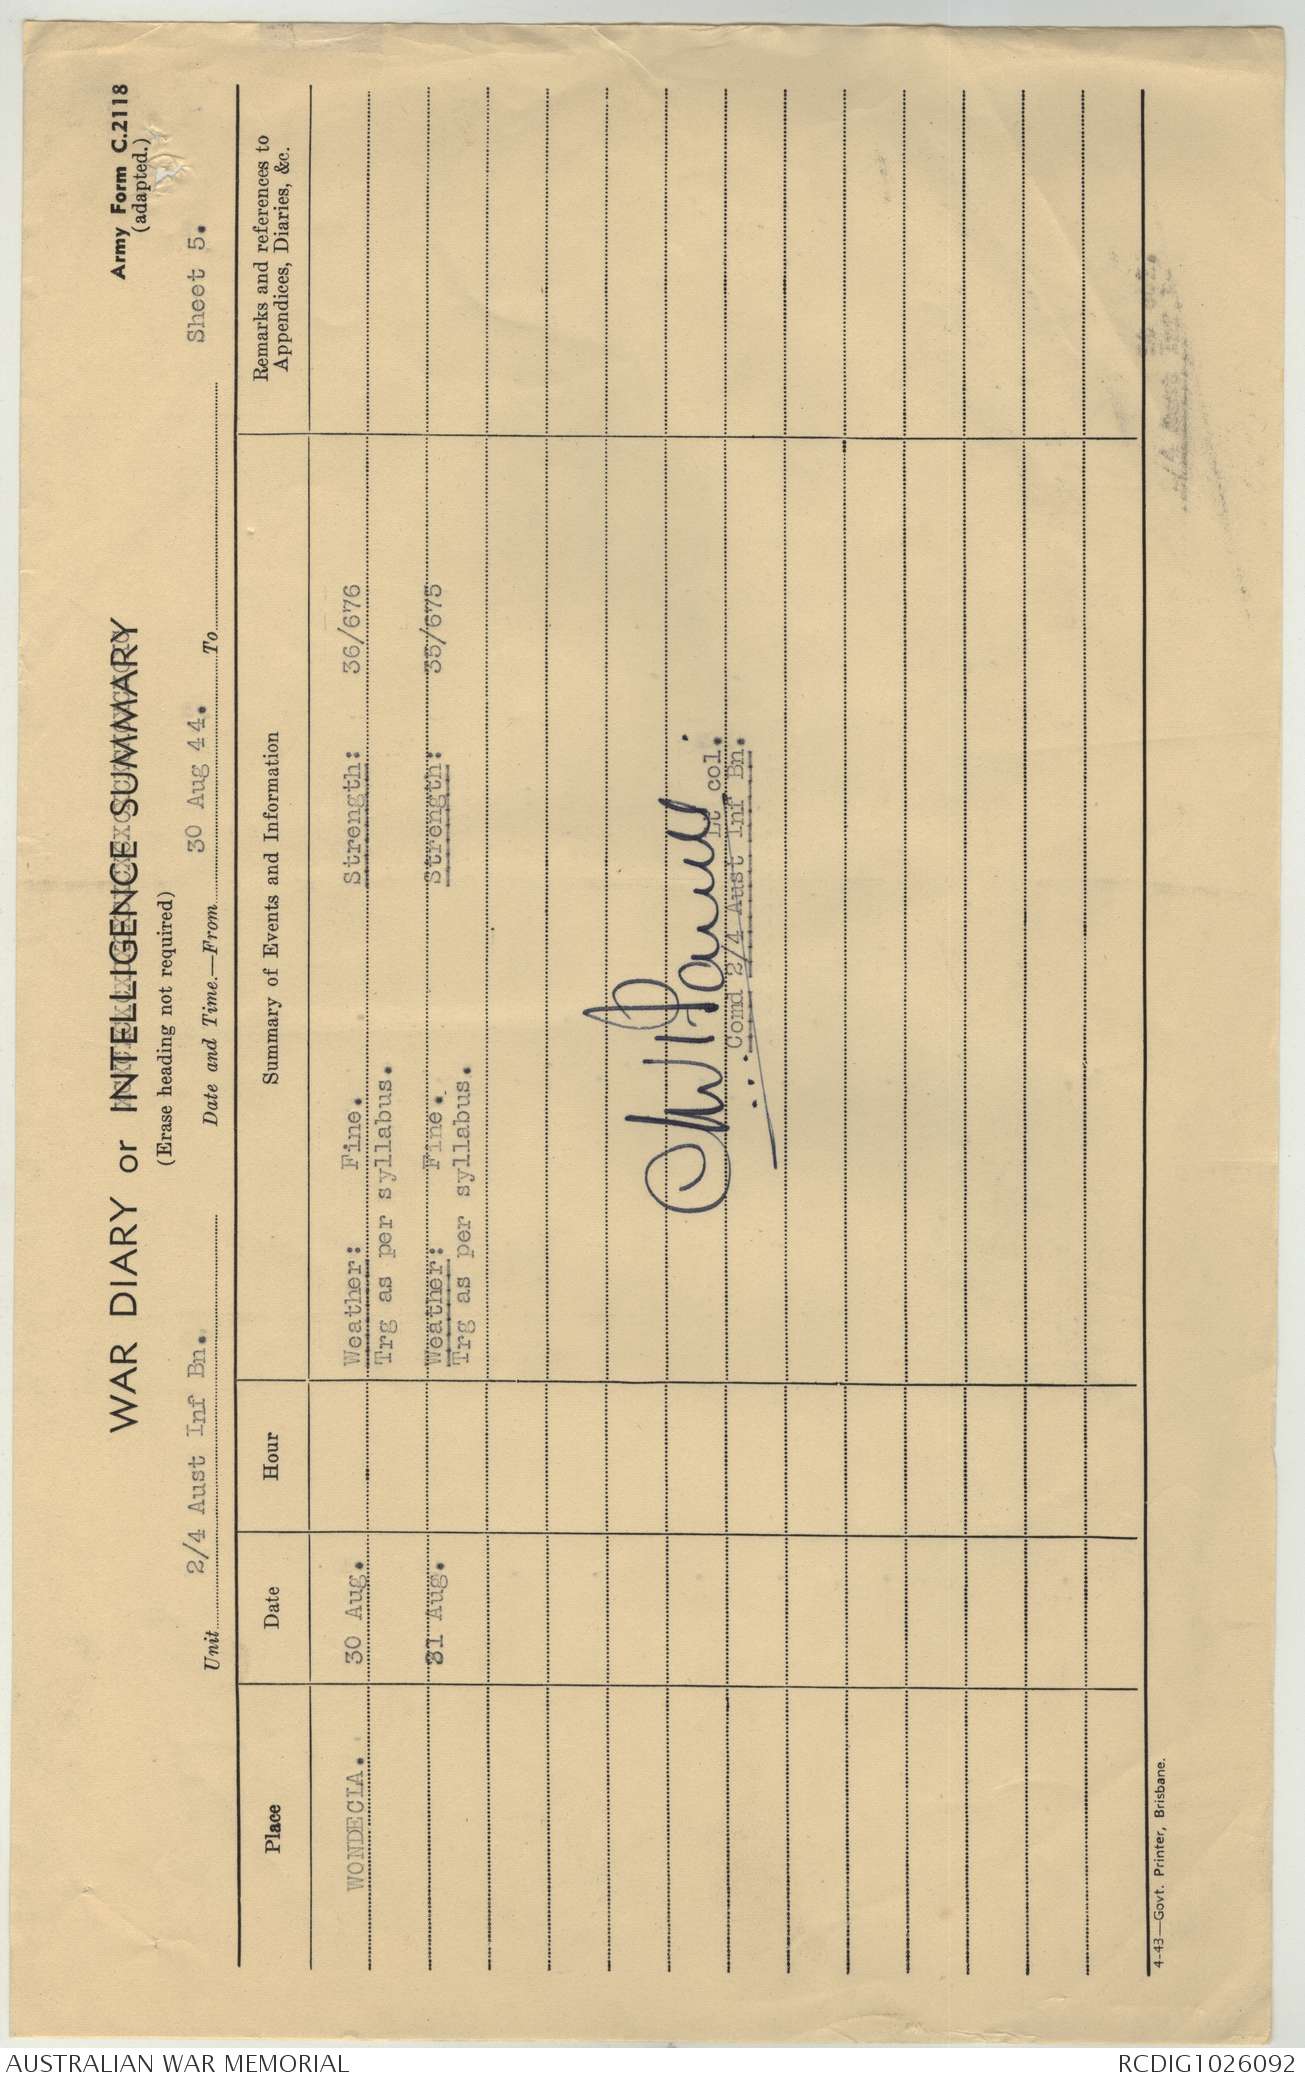 Army Form C.2118
(adapted.)
WAR DIARY or INTELLIGENCE SUMMARY
(Erase heading not required)
Sheet 5.
Unit 2/4 Aust Inf Bn. Date and Time.—From 30 Aug 44. To
Place Date Hour Summary of Events and Information Remarks and references to
Appendices, Diaries, &c.
WONDECLA. 30 Aug. Weather: Fine. Strength: 36/676
Trg as per syllabus.
31 Aug. Weather: Fine. Strength: 35/675
Trg as per syllabus.
Lt col.
Comd 2/4 Aust Inf Bn.
4-43—Govt. Printer, Brisbane.
AUSTRALIAN WAR MEMORIAL
RCDIG1026092